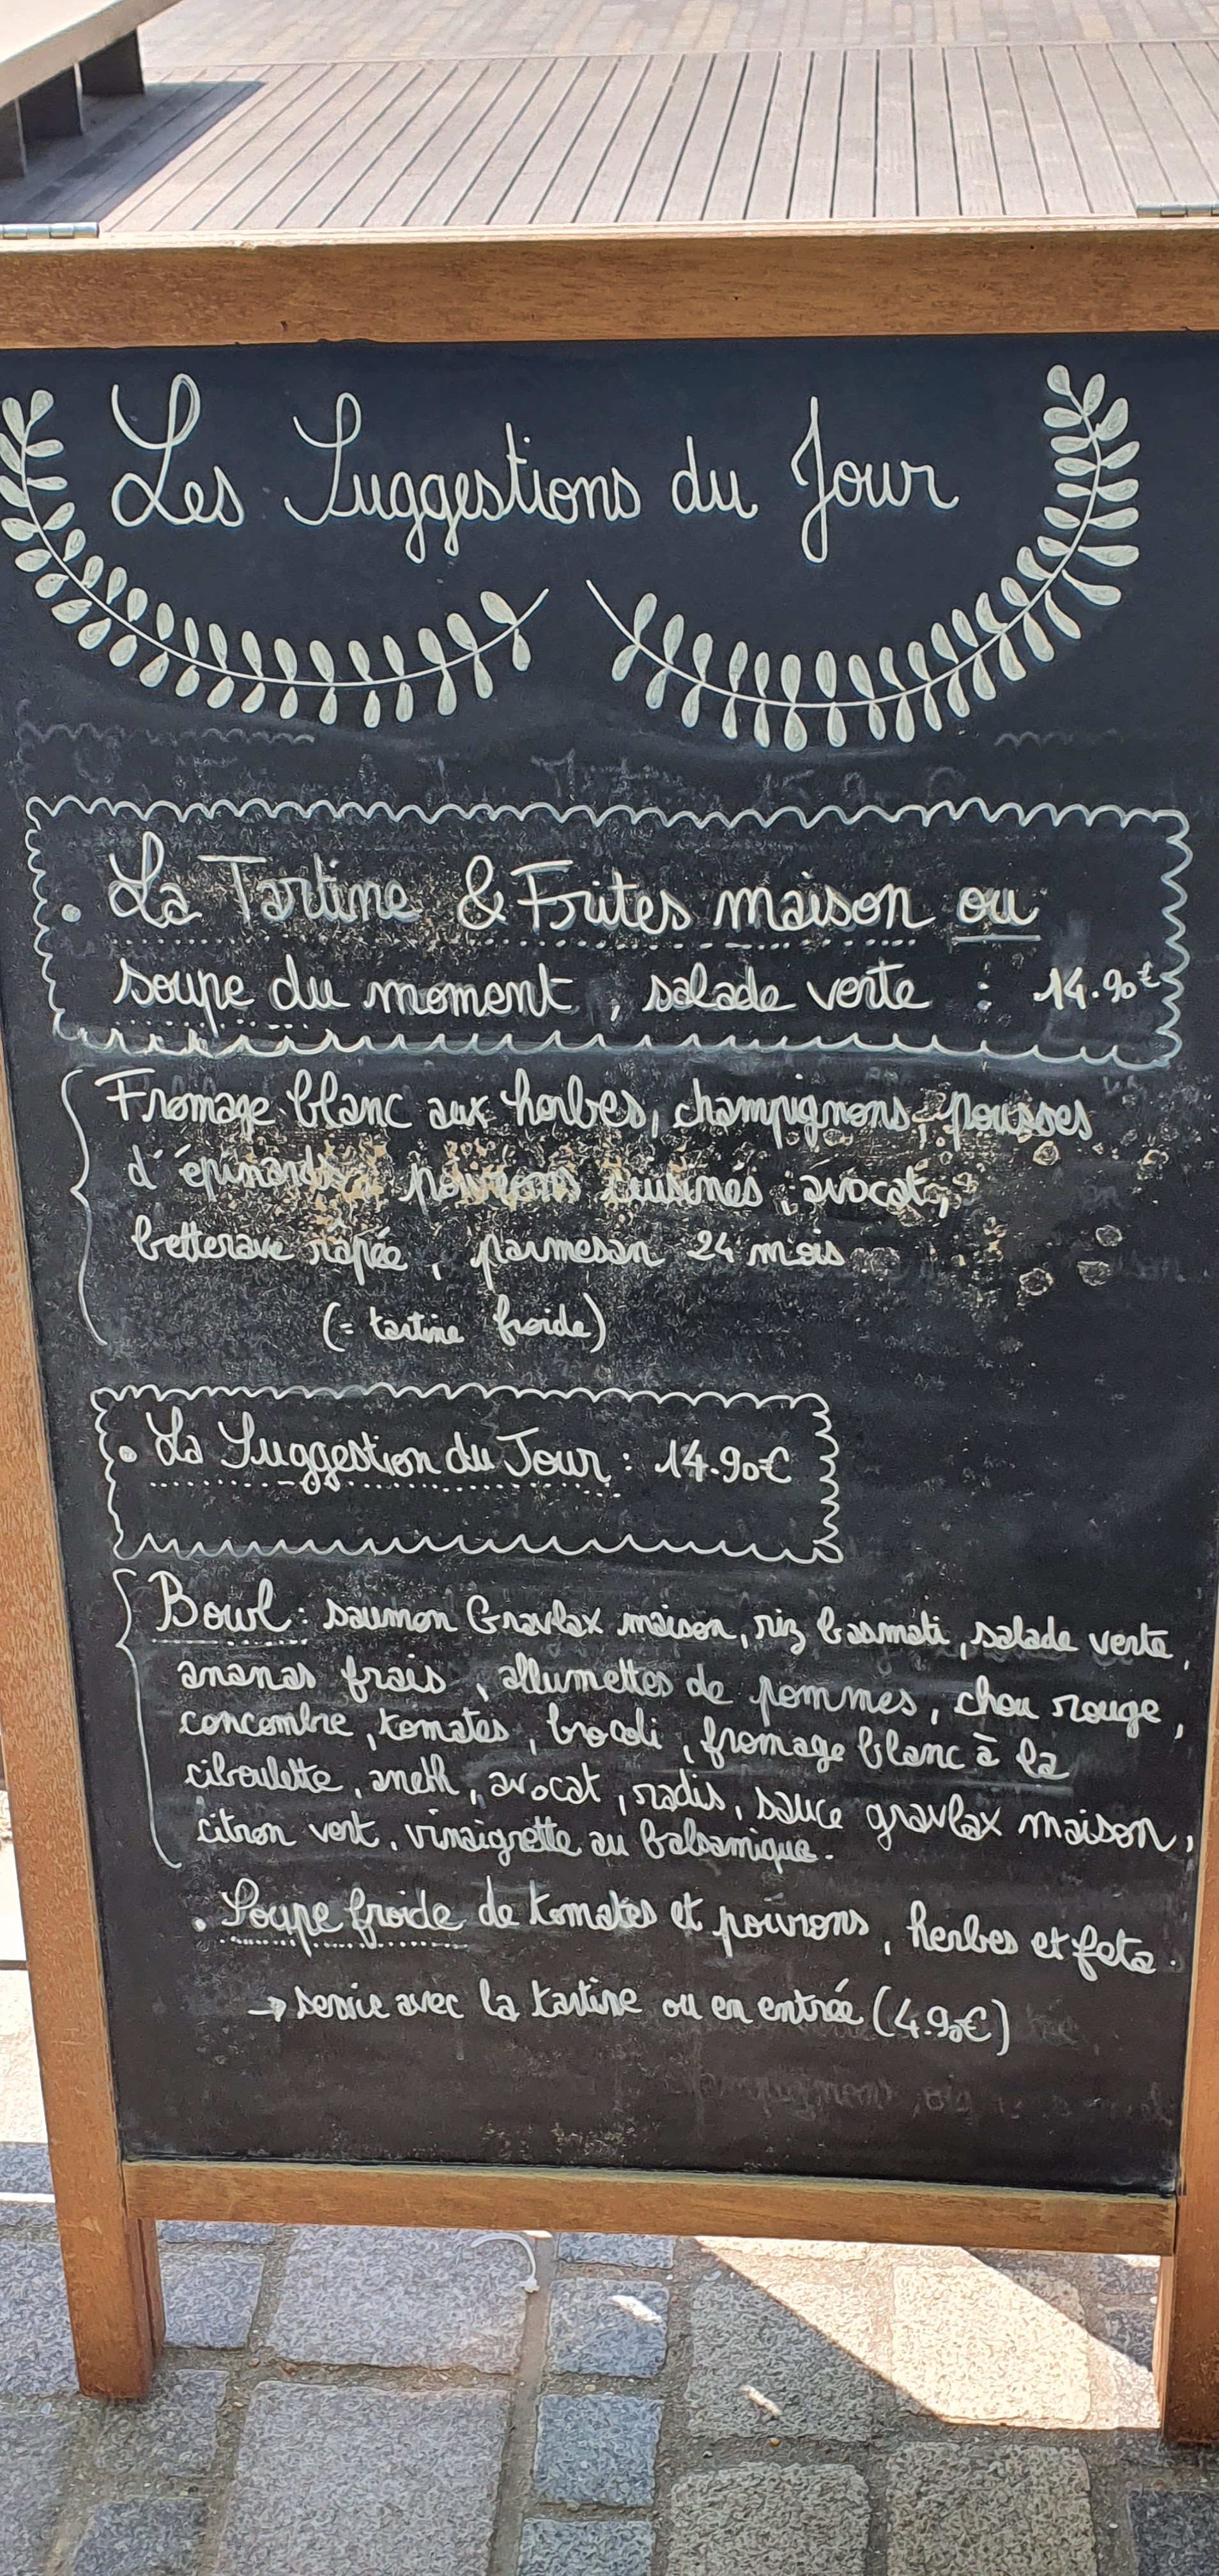 Les Suggestions du Jour
. La Tartine & Frites maison ou
soupe du moment, salade verte : 14.90€
Fromage blanc aux herbes, champignons, pousses
d'épinards, poivrons cuisinés, avocat,
betterave rapée, parmesan 24 mois
(= tartine froide)
. La Suggestion du Jour : 14.90€
Bowl : saumon Gravlax maison, riz basmati, salade verte,
ananas frais, allumettes de pommes, chou rouge,
concombre, tomates, brocoli, fromage blanc à la
ciboulette, aneth, avocat, radis, sauce gravlax maison,
citron vert, vinaigrette au balsamique.
. Soupe froide de tomates et poivrons, herbes et feta.
→ servie avec la tartine ou en entrée (4.90€)